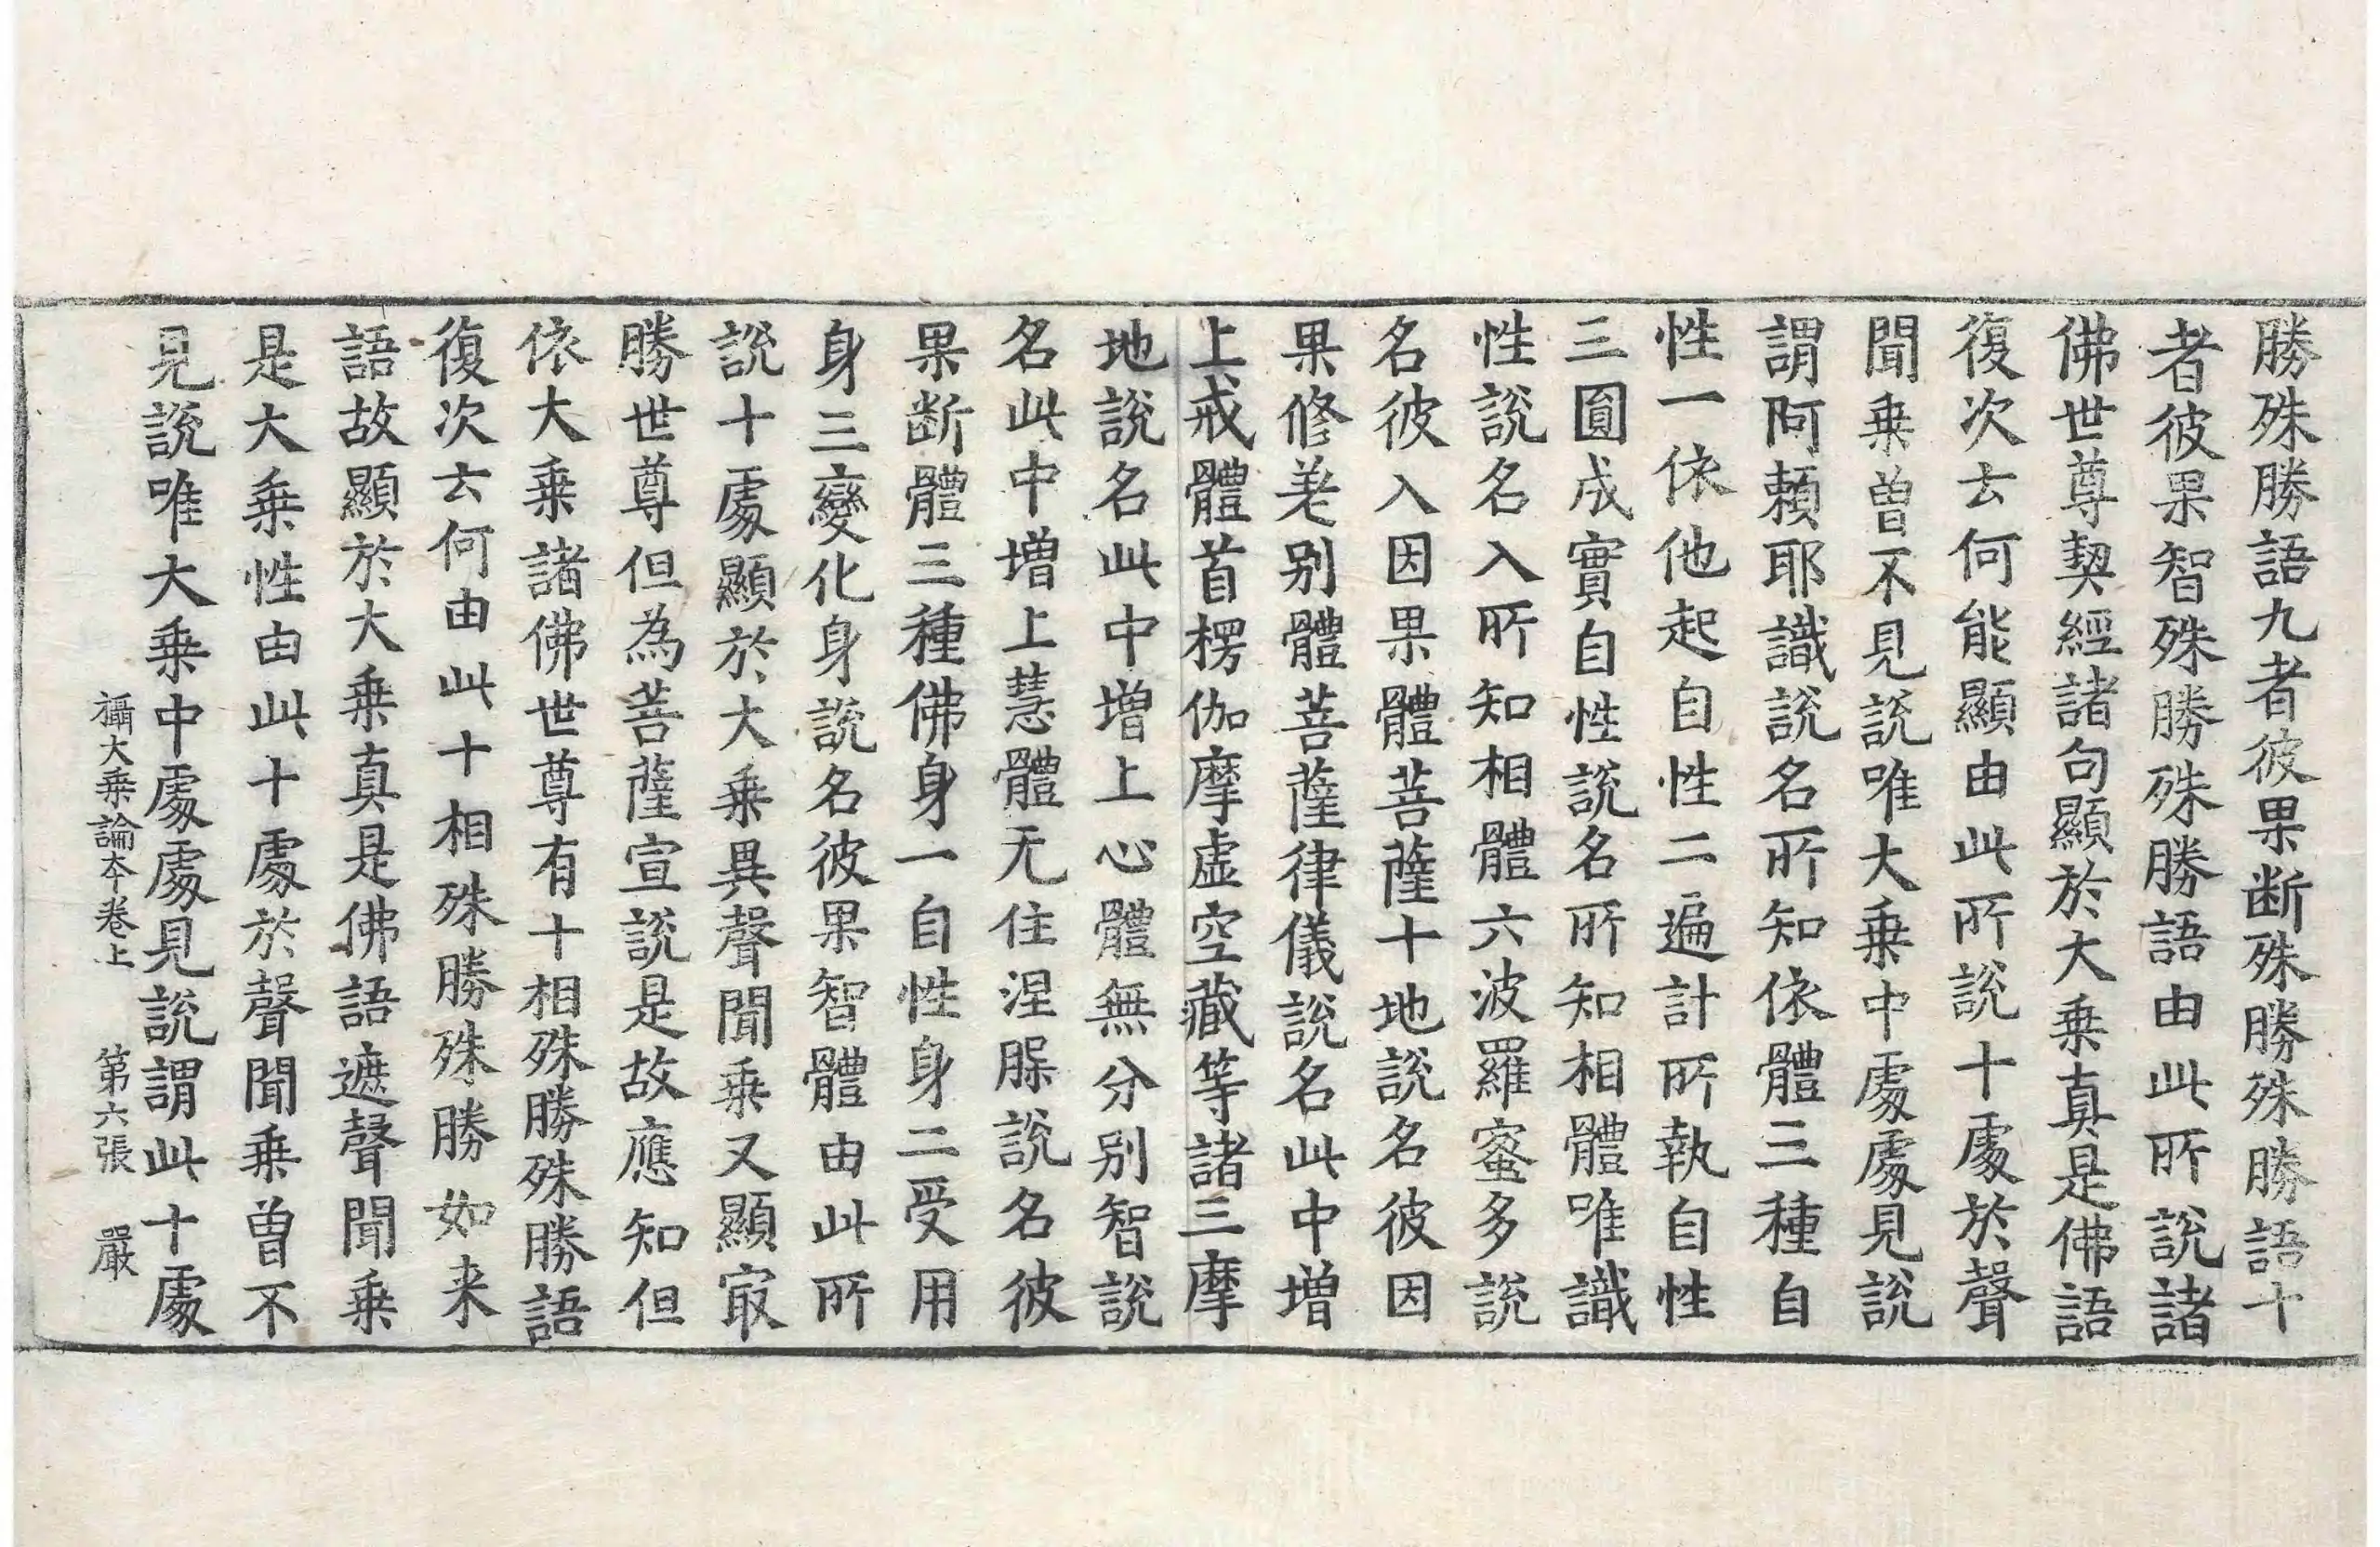 勝殊勝語九者彼果断殊勝殊勝語十
者彼果智殊勝殊勝語由此所說諸
佛世尊契經諸句顯於大乗真是佛語
復次云何能顯由此所說十處於聲
聞乗曽不見說唯大乗中處處見說
謂阿賴耶識說名所知依體三種自
性一依他起自性二遍計所執自性
三圎成實自性說名所知相體唯識
性說名入所知相體六波羅蜜多說
名彼入因果體菩薩十地說名彼因
果修差别體菩薩律儀說名此中增
上戒體首楞伽摩虚空藏等諸三摩
地說名此中增上心體無分别智說
名此中增上慧體无住涅槃說名彼
果断體三種佛身一自性身二受用
身三變化身說名彼果智體由此所
說十處顯於大乗異聲聞乗又顯冣
勝世尊但為菩薩宣說是故應知但
依大乗諸佛世尊有十相殊勝殊勝語
復次云何由此十相殊勝殊勝如来
語故顯於大乗真是佛語遮聲聞乗
是大乗性由此十處於聲聞乗曽不
見說唯大乗中處處見說謂此十處
攝大乗論本卷上 第六張 嚴